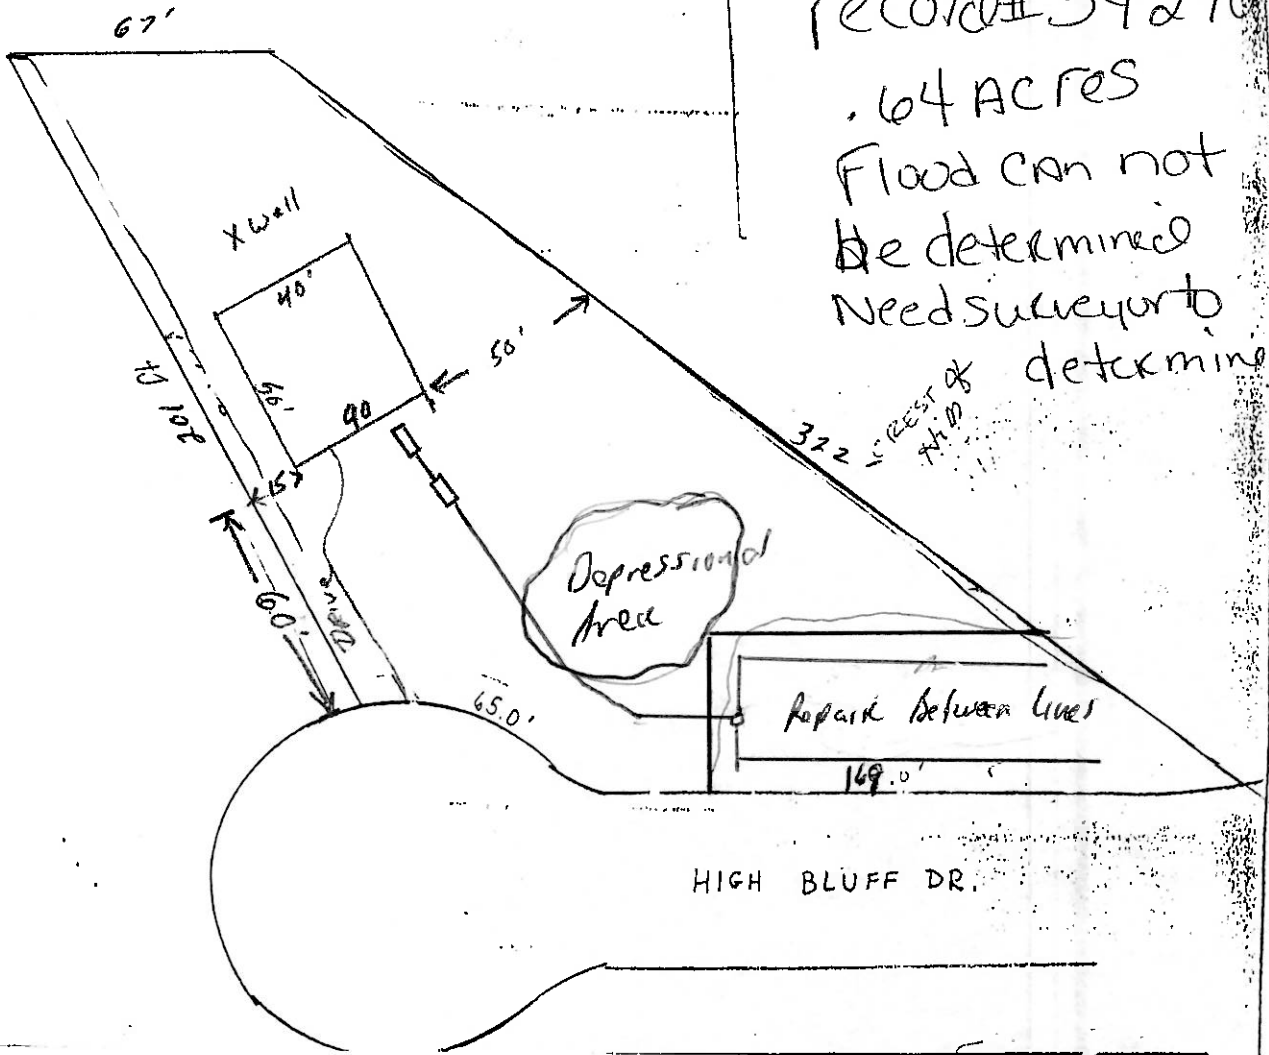 67'
record#
.64 Acres
Flood can not
be determined
Need surveyor to
determine
X Well
40'
50'
90
15
201 Ft
322
CREST of
Hill
60'
Drive
Depressional
Area
65.0'
Repair Between lines
169.0'
HIGH BLUFF DR.